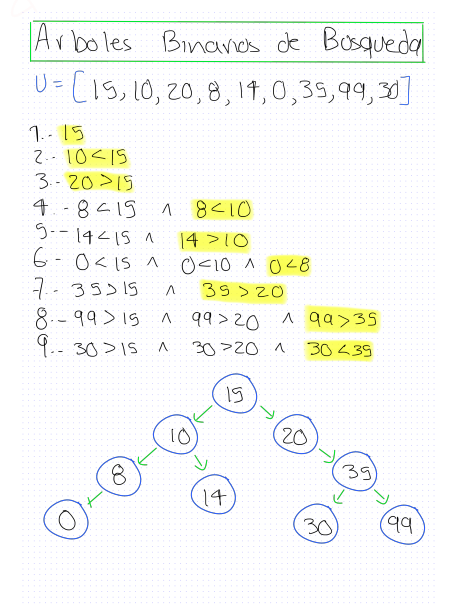 Arboles Binarios de Bosqueda
U = [15, 10, 20, 8, 14, 0, 35, 99, 30]
1.- 15
2.- 10 < 15
3.- 20 > 15
4.- 8 < 15 ∧ 8 < 10
5.- 14 < 15 ∧ 14 > 10
6.- 0 < 15 ∧ 0 < 10 ∧ 0 < 8
7.- 35 > 15 ∧ 35 > 20
8.- 99 > 15 ∧ 99 > 20 ∧ 99 > 35
9.- 30 > 15 ∧ 30 > 20 ∧ 30 < 35
15
10 20
8 14 35
0 30 99